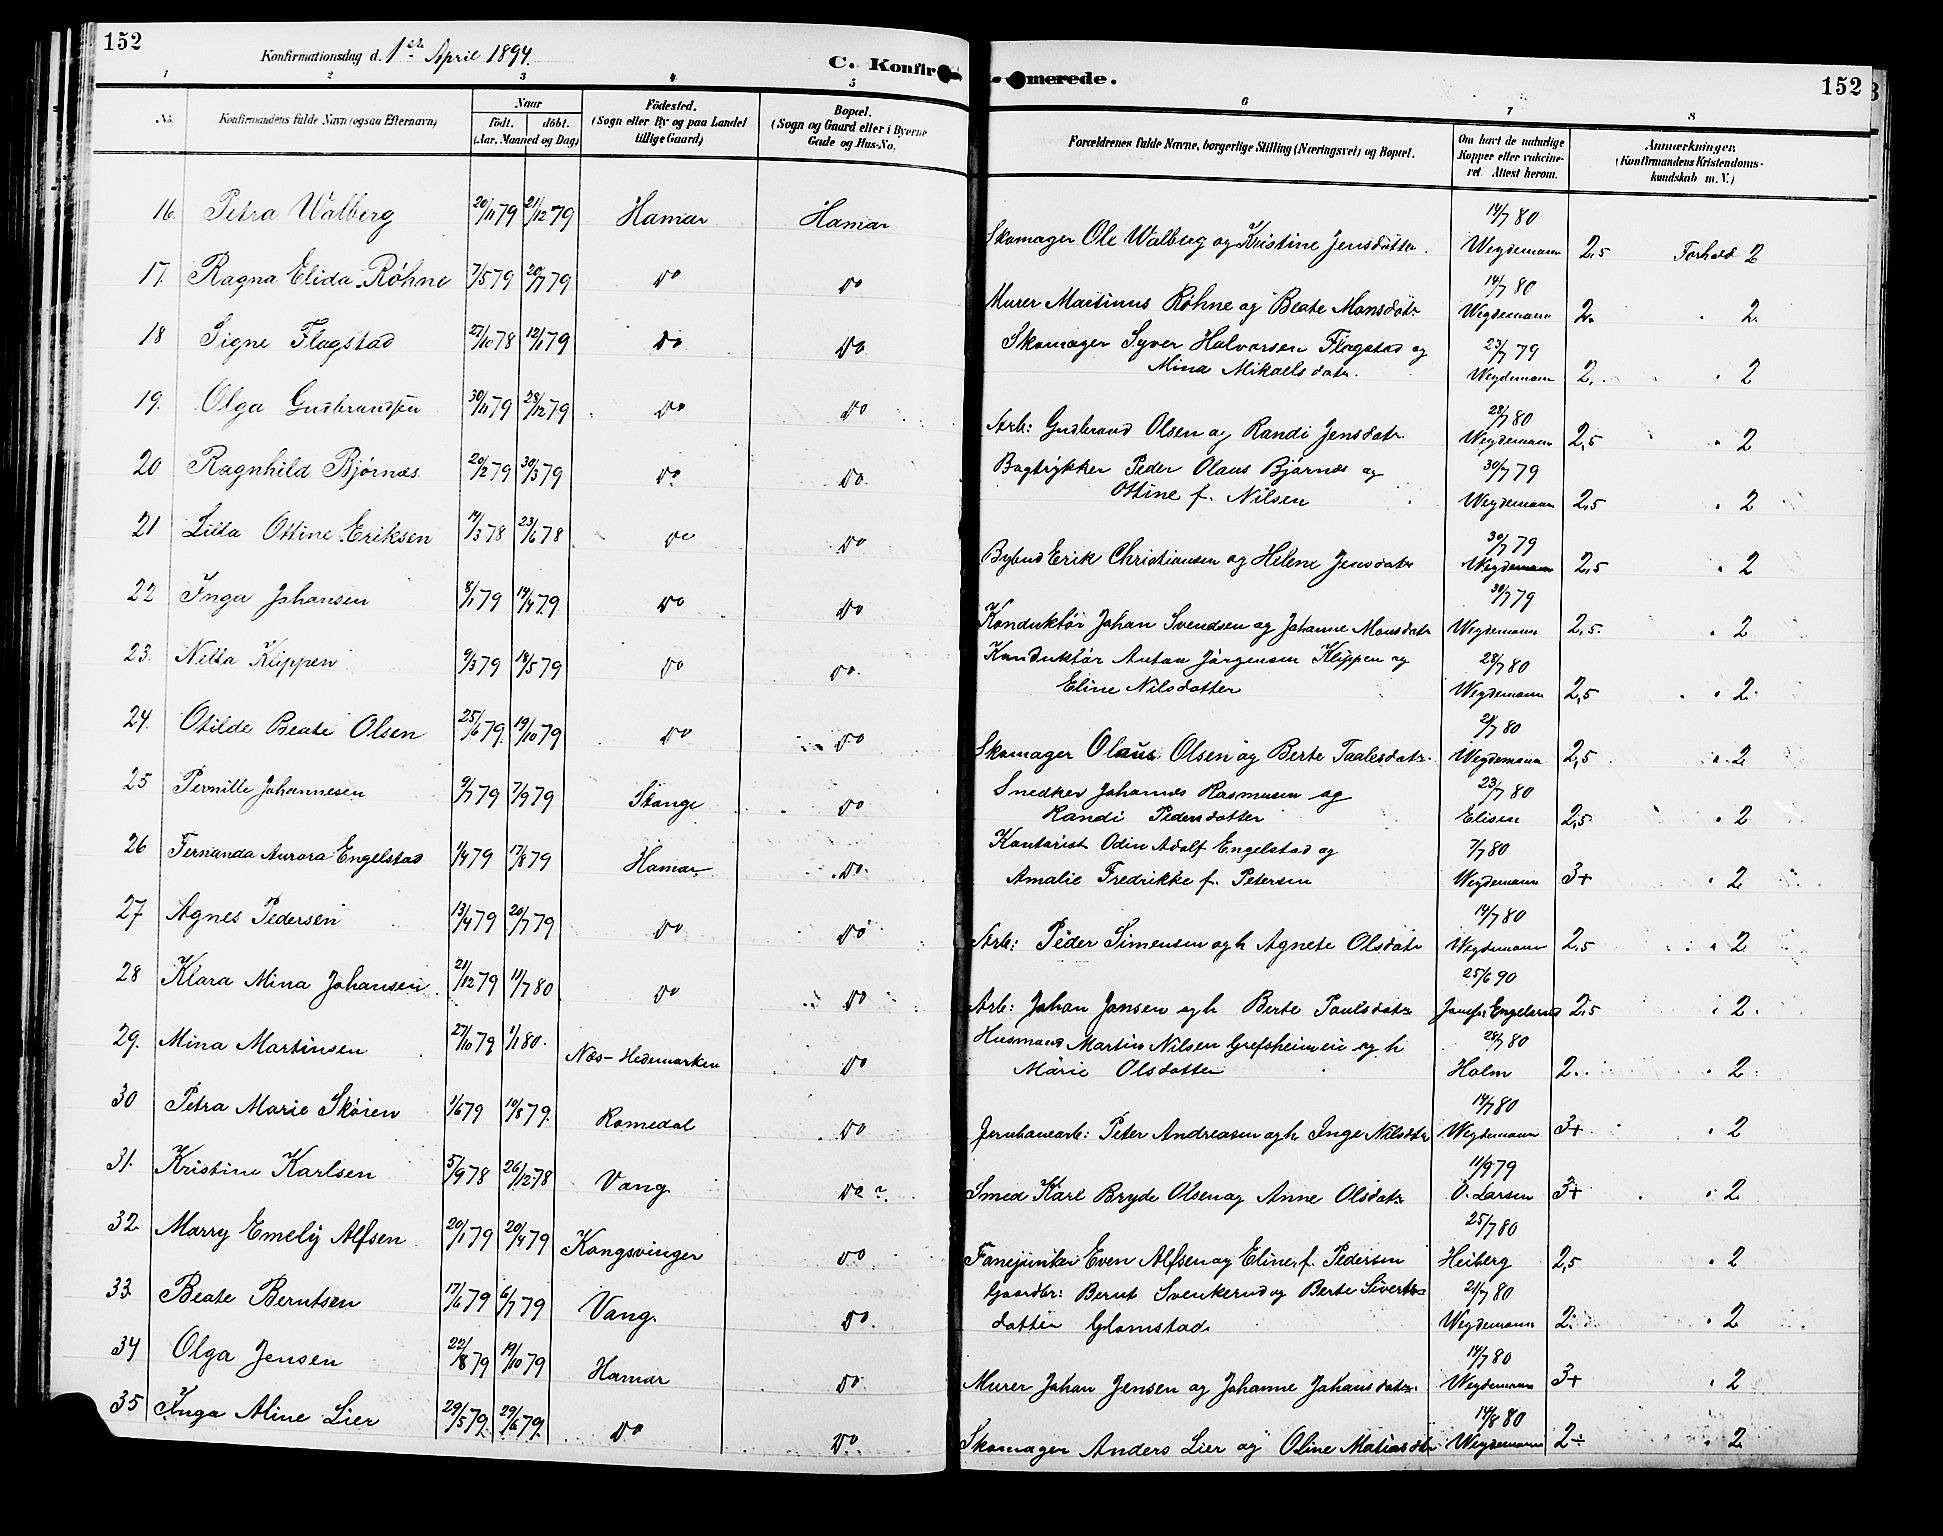 152
Konfirmationsdag d. 1ste April 1894.
C. Konfirmerede.
152
1 2 3 4 5 6 7 8
No. Konfirmandens fulde Navn (ogsaa Efternavn) Naar födt. döbt. (Aar, Maaned og Dag) Födested. (Sogn eller By og paa Landet tillige Gaard) Bopæl. (Sogn og Gaard eller i Byerne Gade og Hus-No. Forældrenes fulde Navne, borgerlige Stilling (Næringsvei) og Bopæl. Om havt de naturlige Kopper eller vakcineret. Attest herom. Anmærkninger. (Konfirmandens Kristendomskundskab m. V.)
16. Petra Walberg 20/11 79 21/12 79 Hamar Hamar Skomager Ole Walberg og Kristine Jensdatter 14/7 80 Weydemann 2,5 Forhold 2
17. Ragna Elida Røhne 7/5 79 20/7 79 Do Do Murer Martinus Røhne og Beate Monsdatr 14/7 80 Weydemann 2. " 2.
18 Signe Flagstad 27/10 78 12/1 79 Do Do Skomager Syver Halvorsen Flagstad og Mina Mikaelsdatr. 23/7 79 Weydemann 2. " 2
19. Olga Gudbrandsen 30/11 79 28/12 79 Do Do Arb: Gudbrand Olsen og Randi Jensdatr. 28/7 80 Weydemann 2,5 " 2
20 Ragnhild Bjørnæs 20/2 79 30/3 79 Do Do. Bogtrykker Peder Olaus Bjørnæs og Ottine f. Nilsen 30/7 79 Weydemann 2,5 " 2
21 Lilla Ottine Eriksen 14/3 78 23/6 78 Do Do Bybud Erik Christiansen og Helene Jensdatr 30/7 79 Weydemann 2,5 " 2
22 Inga Johansen 8/1 79 14/4 79 Do Do Konduktør Johan Svendsen og Johanne Monsdatr 30/7 79 Weydemann 2,5. " 2
23. Nilla Klippen 9/3 79 18/5 79 Do Do. Konduktør Anton Jørgensen Klippen og Eline Nilsdatter 28/7 80 Weydemann 2,5 " 2.
24. Otilde Beate Olsen 25/6 79. 19/10 79 Do Do Skomager Olaus Olsen og Berte Taalesdatr. 21/7 80 Weydemann 2,5 " 2
25 Pernille Johannesen 9/7 79 7/9 79 Stange Do Snedker Johannes Rasmusen og Randi Pedersdatter 23/7 80 Elisen 2,5 " 2
26 Fernanda Aurora Engelstad 1/4 79 17/8 79 Hamar. Do. Kontorist Odin Adolf Engelstad og Amalie Fredrikke f. Petersen 7/7 80 Weydemann 3+ " 2
27 Agnes Pedersen 13/4 79 20/7 79 Do Do Arb: Peder Simensen og h Agnete Olsdatr 14/7 80 Weydemann 2,5 " 2
28 Klara Mina Johansen. 21/12 79 11/7 80 Do Do Arb: Johan Jansen og h Berte Paulsdatr 25/6 90 2,5 " 2.
29. Mina Martinsen 27/10 79 1/1 80. Næs-Hedemarken Do Husmand Martin Nilsen Grefsheimeie og h Marie Olsdatter 28/7 80 Holm 2. " 2
30 Petra Marie Skøien 1/6 79 10/8 79. Romedal Do Jernbanearb: Peter Andreasen og h Inge Nilsdtr 14/7 80 Weydemann 3+ " 2
31. Kristine Karlsen 5/9 78 26/12 78 Vang Do Smed Karl Bryde Olsen og Anne Olsdatr 11/9 79 O. Larsen 3+ " 2
32. Marry Emely Alfsen 20/1 79 20/4 79 Kongsvinger Do Fanejunker Even Alfsen og Eline f. Pedersen 25/7 80 Heiberg 2,5 " 2
33. Beate Berntsen 17/6 79 6/7 79 Vang. Do. Gaardbr: Bernt Svenkerud og Berte Sivertsdatter Glomstad. 21/7 80 Weydemann 2. " 2
34 Olga Jensen 22/8 79 19/10 79 Hamar Do. Murer Johan Jensen og Johanne Johansdatr. 14/7 80 Weydemann 3+ " 2
35 Inga Aline Lier 29/5 79. 29/6 79. Do Do. Skomager Anders Lier og Oline Matiasdtr 14/8 80 Weydemann 2÷ " 2